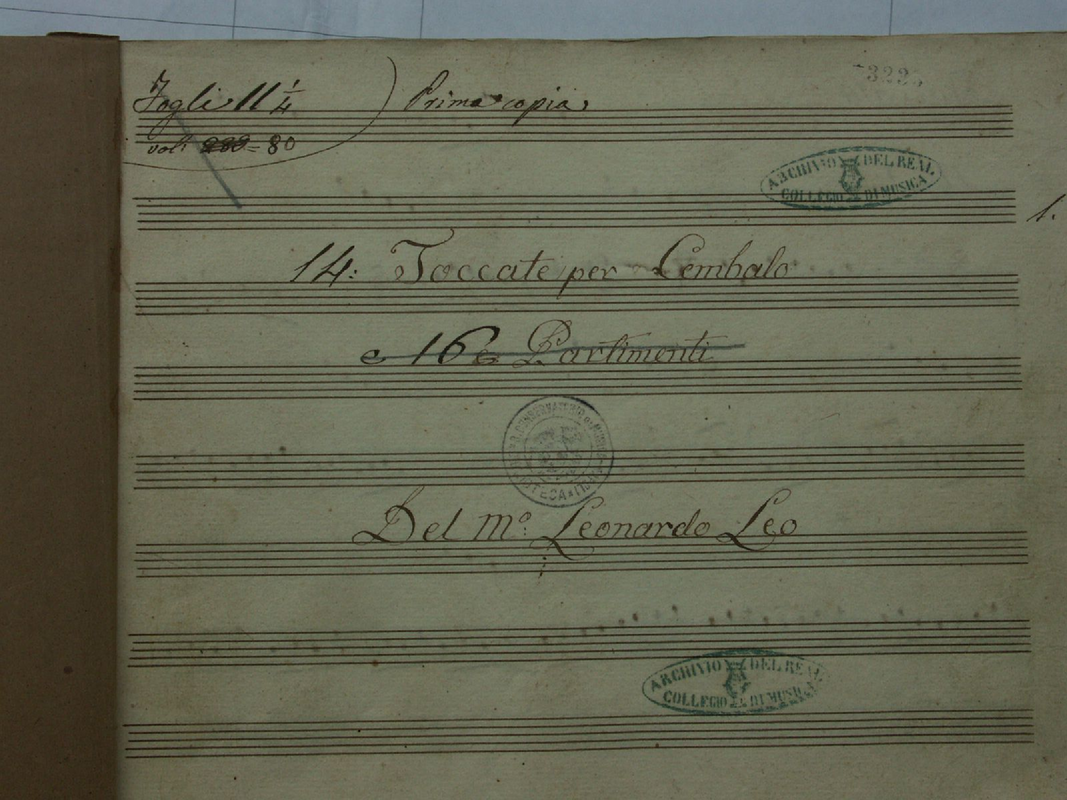 Fogli 11 1/4
Prima copia
3225
= 80
ARCHIVIO DEL REAL
COLLEGIO DI MUSICA
1.
14: Toccate per Cembalo
e 16 Partimenti
CONSERVATORIO DI MUSICA
Del Mº: Leonardo Leo
ARCHIVIO DEL REAL
COLLEGIO DI MUSICA